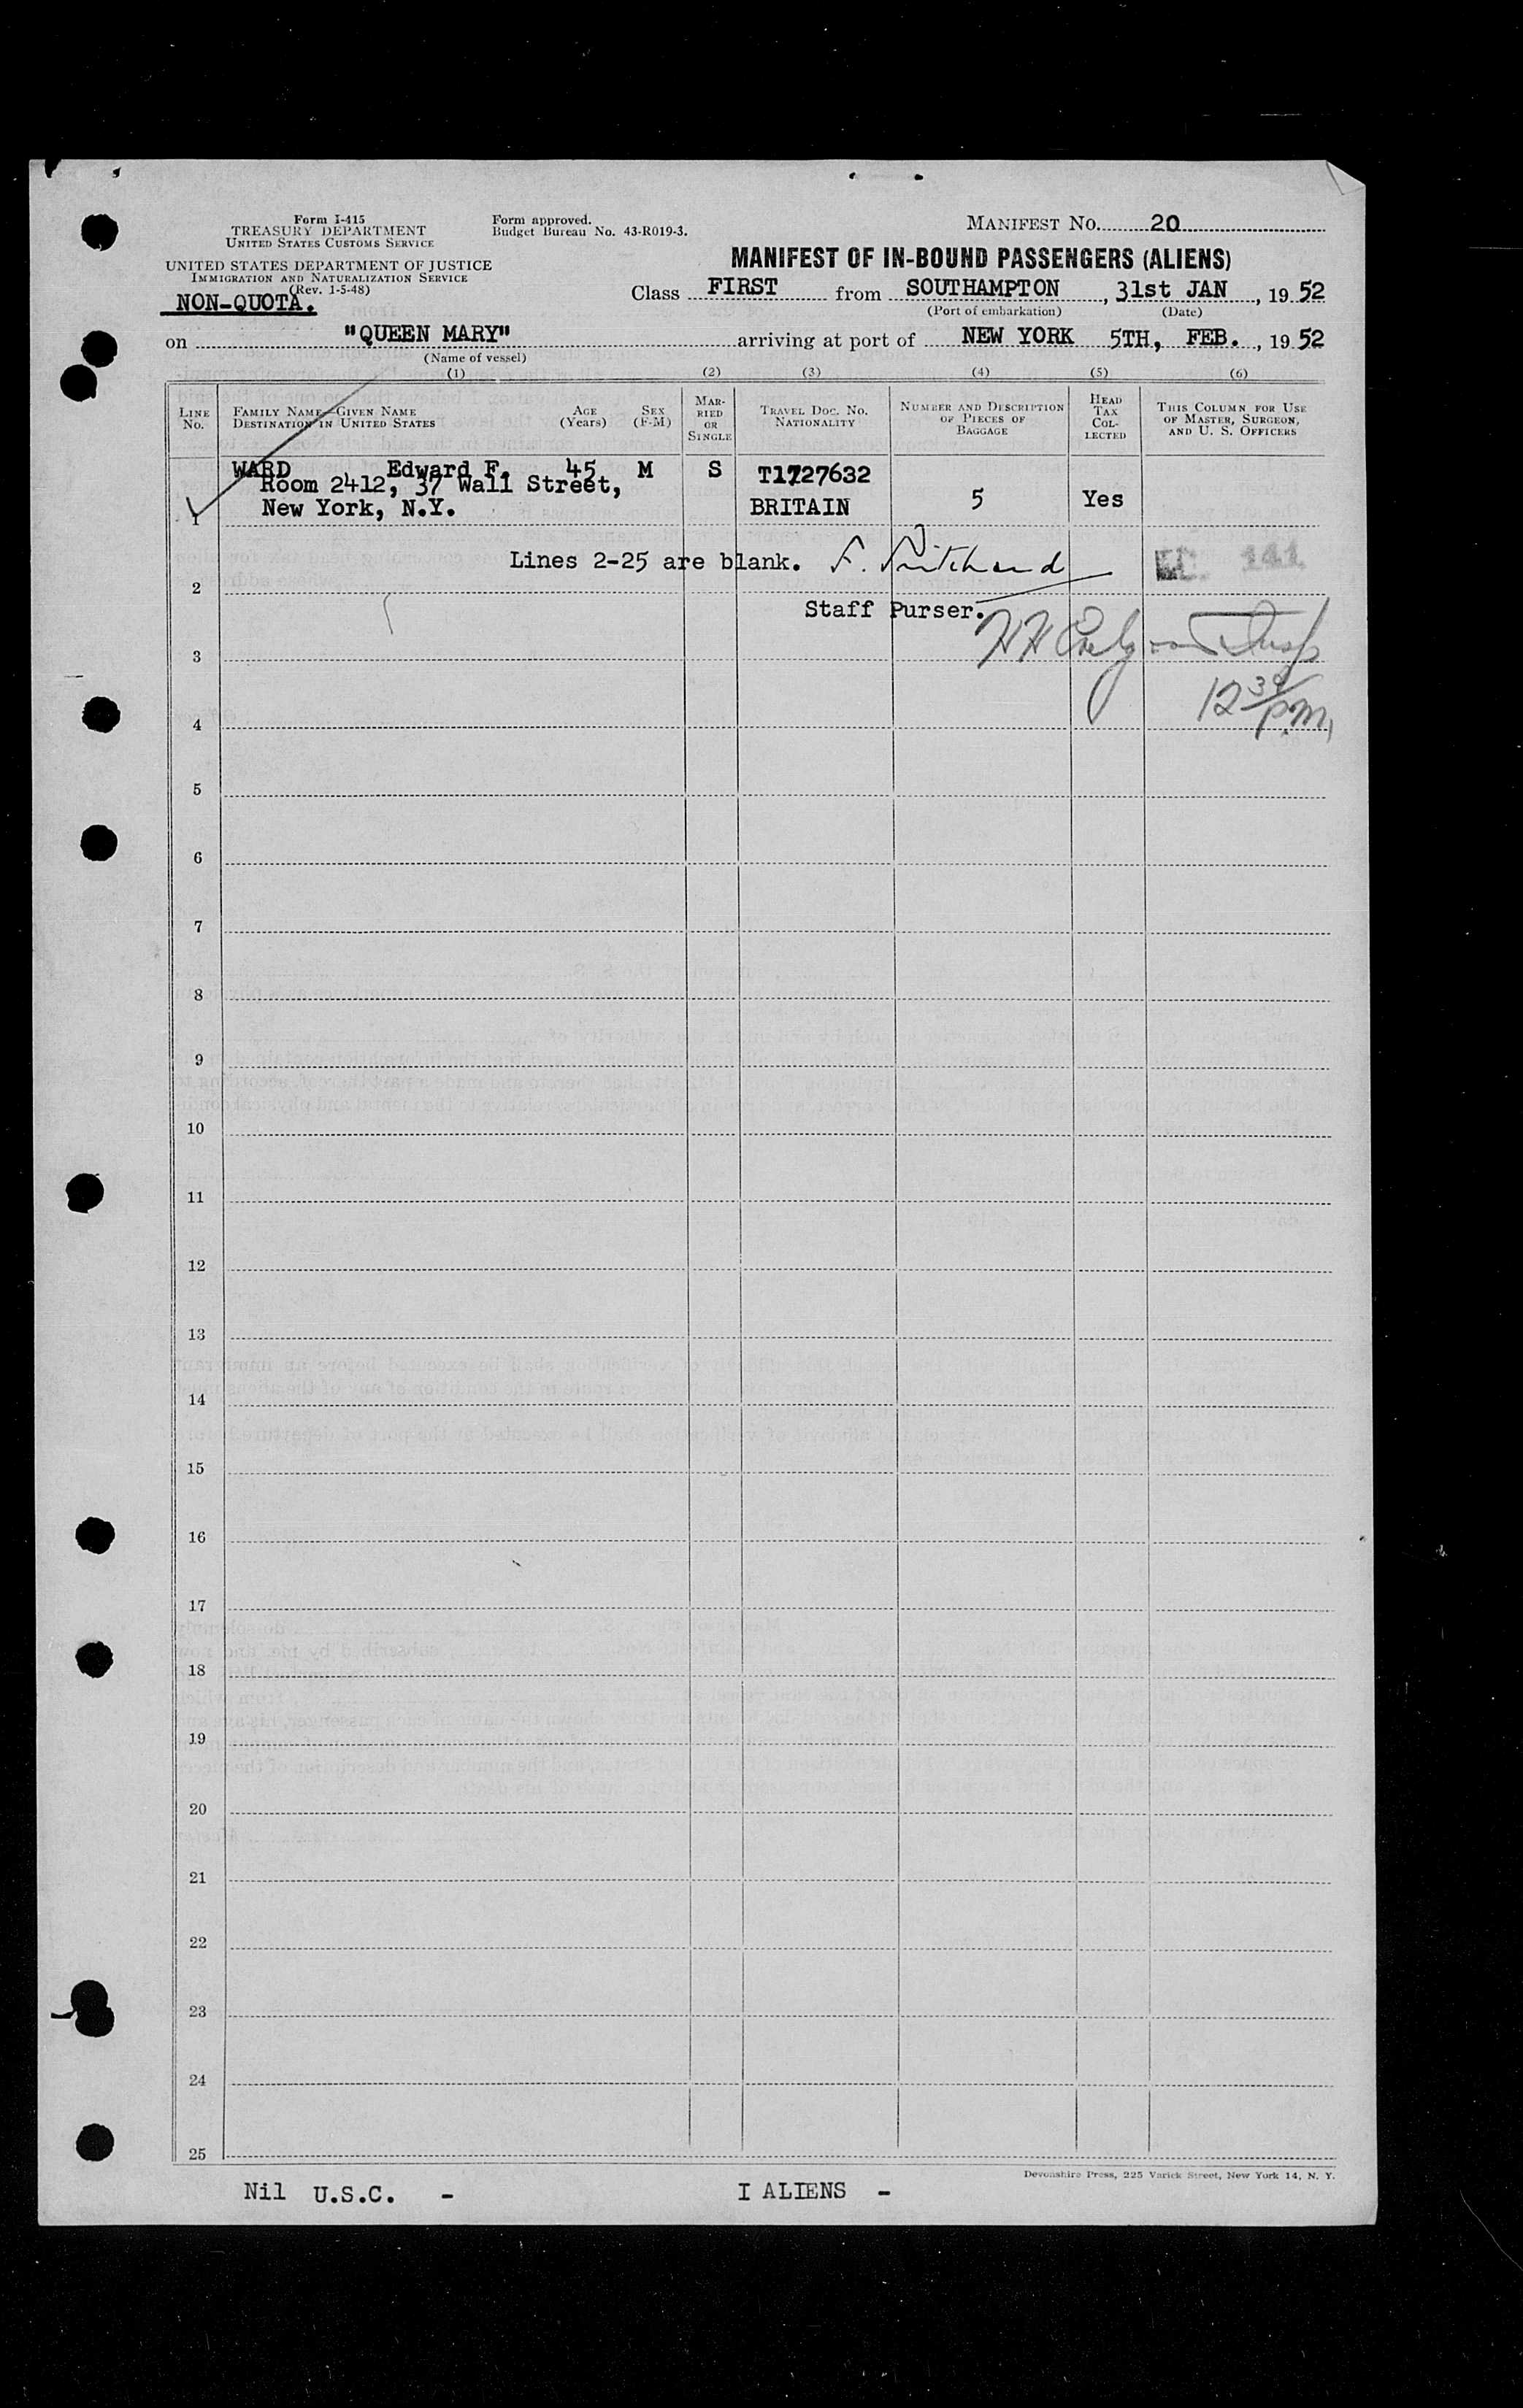 Form I-415
TREASURY DEPARTMENT
UNITED STATES CUSTOMS SERVICE
Form approved.
Budget Bureau No. 43-R019-3.
MANIFEST No. 20
UNITED STATES DEPARTMENT OF JUSTICE
IMMIGRATION AND NATURALIZATION SERVICE
(Rev. 1-5-48)
NON-QUOTA.
MANIFEST OF IN-BOUND PASSENGERS (ALIENS)
Class FIRST from SOUTHAMPTON, 31st JAN, 1952
(Port of embarkation) (Date)
on "QUEEN MARY" arriving at port of NEW YORK 5TH, FEB., 1952
(Name of vessel)
(1) (2) (3) (4) (5) (6)
LINE No.
FAMILY NAME—GIVEN NAME
DESTINATION IN UNITED STATES
AGE (Years)
SEX (F-M)
MARRIED OR SINGLE
TRAVEL DOC. NO.
NATIONALITY
NUMBER AND DESCRIPTION OF PIECES OF BAGGAGE
HEAD TAX COLLECTED
THIS COLUMN FOR USE OF MASTER, SURGEON, AND U. S. OFFICERS
WARD Edward F. 45 M S T1727632
Room 2412, 37 Wall Street,
1 New York, N.Y. BRITAIN 5 Yes
Lines 2-25 are blank. F. Pritchard 141
2
Staff Purser.
3
12 30 P.M.
4
5
6
7
8
9
10
11
12
13
14
15
16
17
18
19
20
21
22
23
24
25
Devonshire Press, 225 Varick Street, New York 14, N. Y.
Nil U.S.C. - I ALIENS -